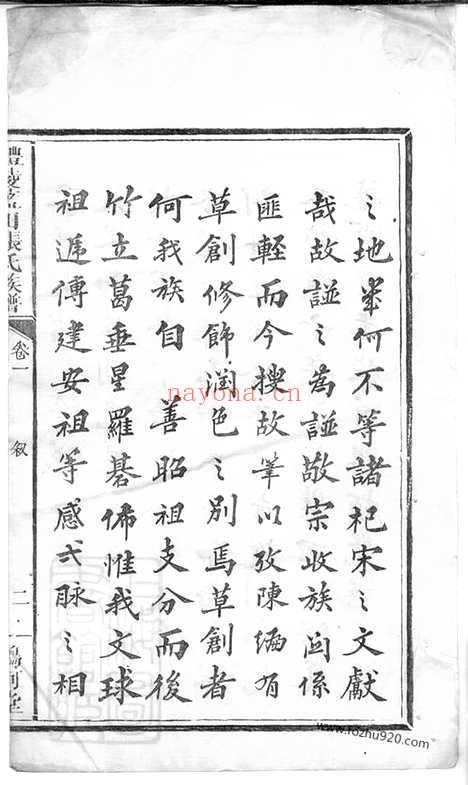 之地幾何不等諸杞宋之文獻
哉故諡之為諡敬宗收族関係
匪輕而今搜故筆以攷陳編有
草創修飾潤色之別焉草創者
何我族自 善昭祖支分而後
竹立葛垂星羅碁佈惟我文球
祖遞傳建安祖等感弍脉之相
張氏族譜
卷一
叙
二
堂
nayona.cn
www.fozhu920.com